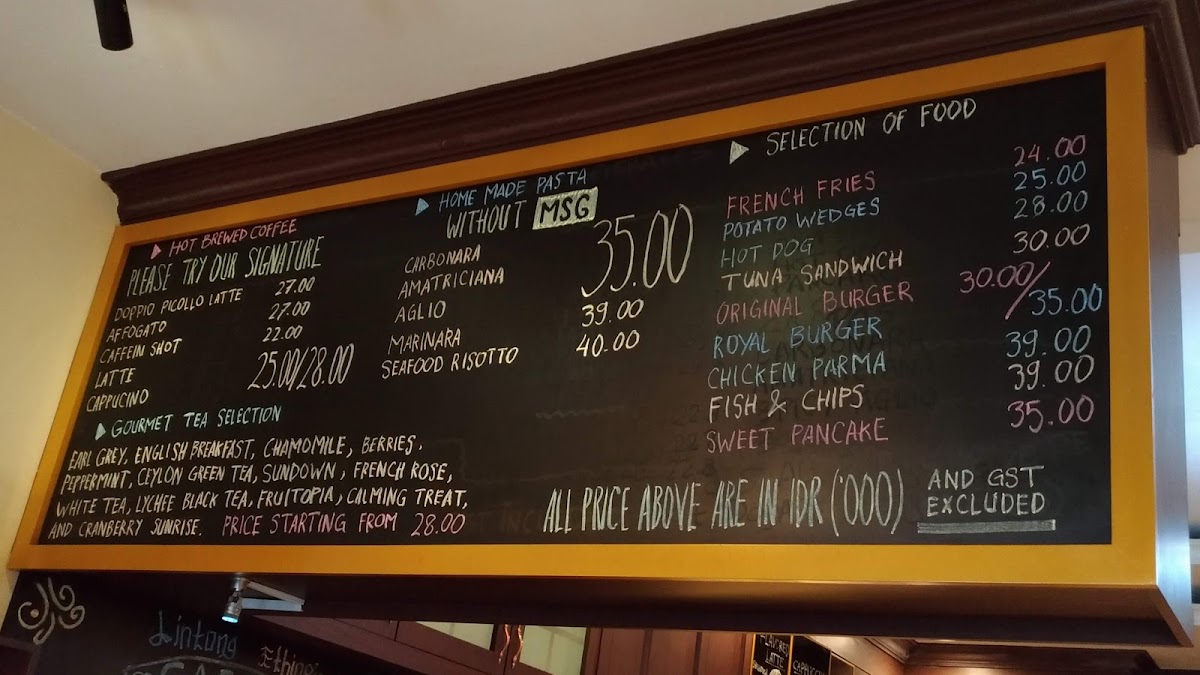 HOT BREWED COFFEE
PLEASE TRY OUR SIGNATURE
DOPPIO PICOLLO LATTE 27.00
AFFOGATO 27.00
CAFFEIN SHOT 22.00
LATTE 25.00/28.00
CAPPUCINO
GOURMET TEA SELECTION
EARL GREY, ENGLISH BREAKFAST, CHAMOMILE, BERRIES,
PEPPERMINT, CEYLON GREEN TEA, SUNDOWN, FRENCH ROSE,
WHITE TEA, LYCHEE BLACK TEA, FRUITOPIA, CALMING TREAT,
AND CRANBERRY SUNRISE. PRICE STARTING FROM 28.00
HOME MADE PASTA
WITHOUT MSG
CARBONARA
AMATRICIANA 35.00
AGLIO
MARINARA 39.00
SEAFOOD RISOTTO 40.00
SELECTION OF FOOD
FRENCH FRIES 24.00
POTATO WEDGES 25.00
HOT DOG 28.00
TUNA SANDWICH 30.00
ORIGINAL BURGER 30.00/
ROYAL BURGER 35.00
CHICKEN PARMA 39.00
FISH & CHIPS 39.00
SWEET PANCAKE 35.00
ALL PRICE ABOVE ARE IN IDR ('000) AND GST
EXCLUDED
Lintong
FLAVORED
LATTE